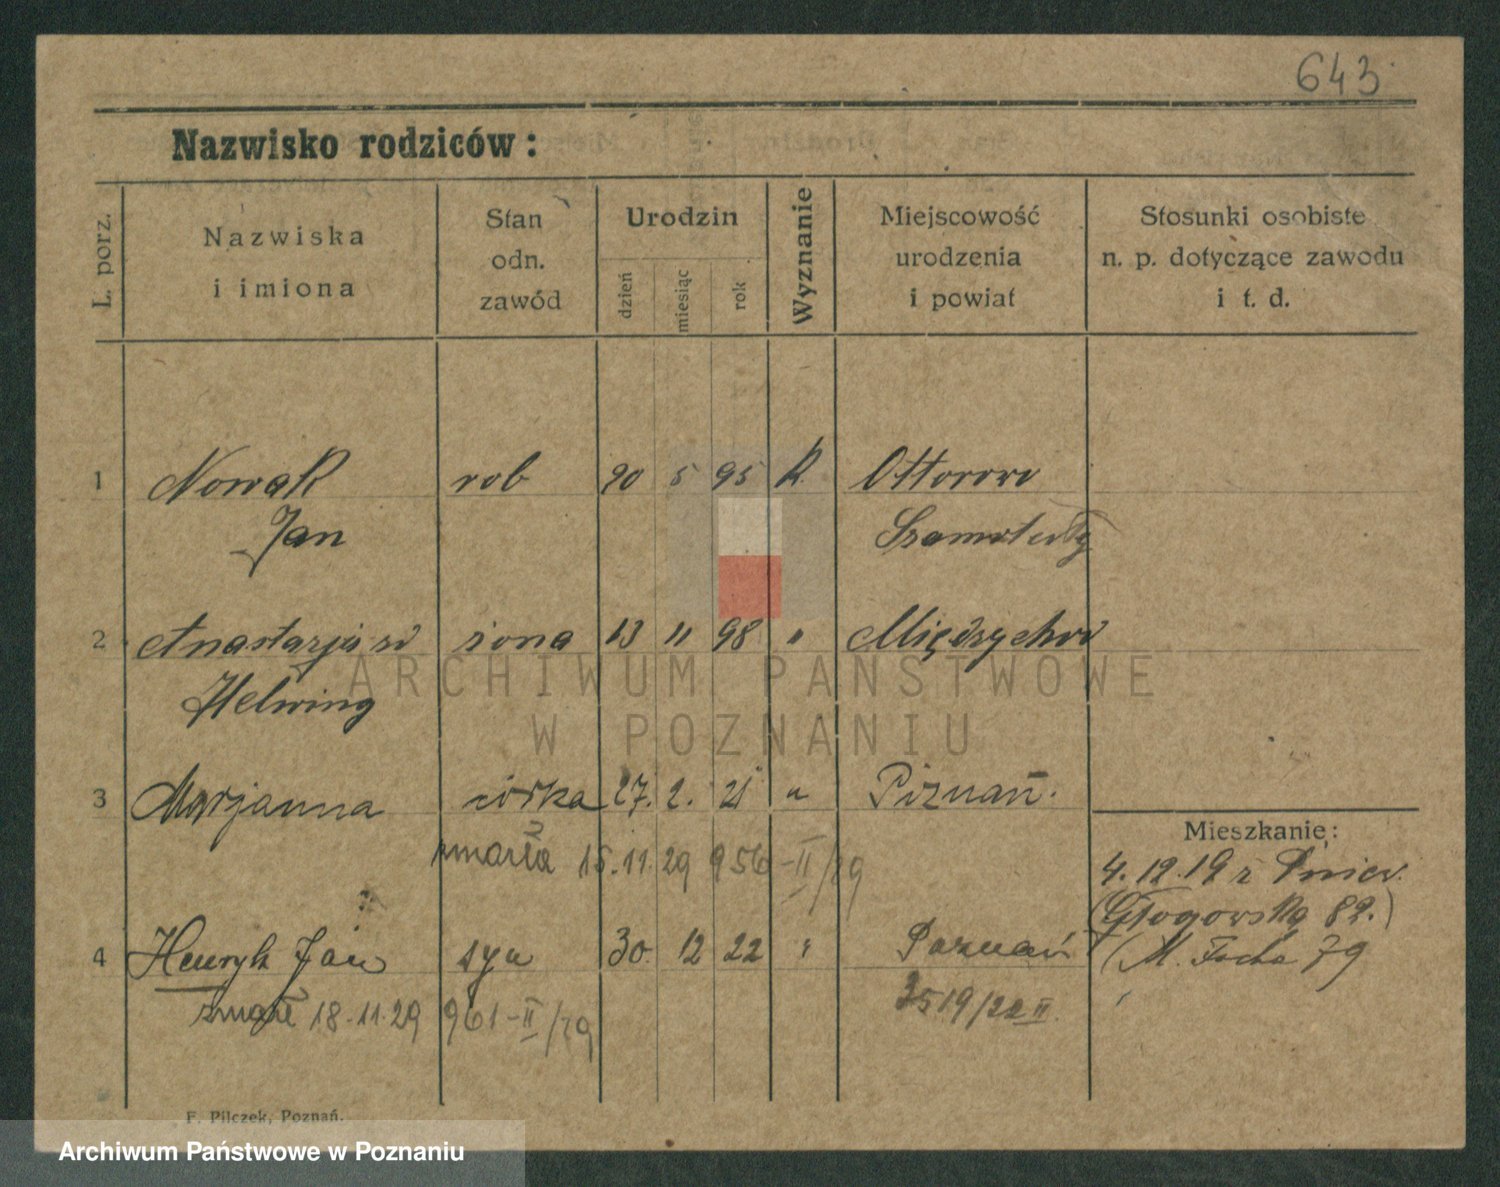 643
Nazwisko rodziców:
L. porz.
Nazwiska
i imiona
Stan
odn.
zawód
Urodzin
dzień
miesiąc
rok
Wyznanie
Miejscowość
urodzenia
i powiat
Stosunki osobiste
n. p. dotyczące zawodu
i t. d.
1 Nowak rob 20 5 95 K. Ottorowo
Jan Szamotuły
2 Anastazja żona 13 11 98 " Międzychód
Helwing
ARCHIWUM PAŃSTWOWE
W POZNANIU
3 Marjanna córka 27. 2. 21 " Poznań.
zmarła 15.11.29 956-II/29
Mieszkanie:
4. 12. 19 z Pniew.
(Głogowska 82.)
4 Henryk Jan syn 30. 12 22 " Poznań
(M. Focha 79
zmarł 18.11.29 961-II/29 3519/22 II.
F. Pilczek, Poznań.
Archiwum Państwowe w Poznaniu